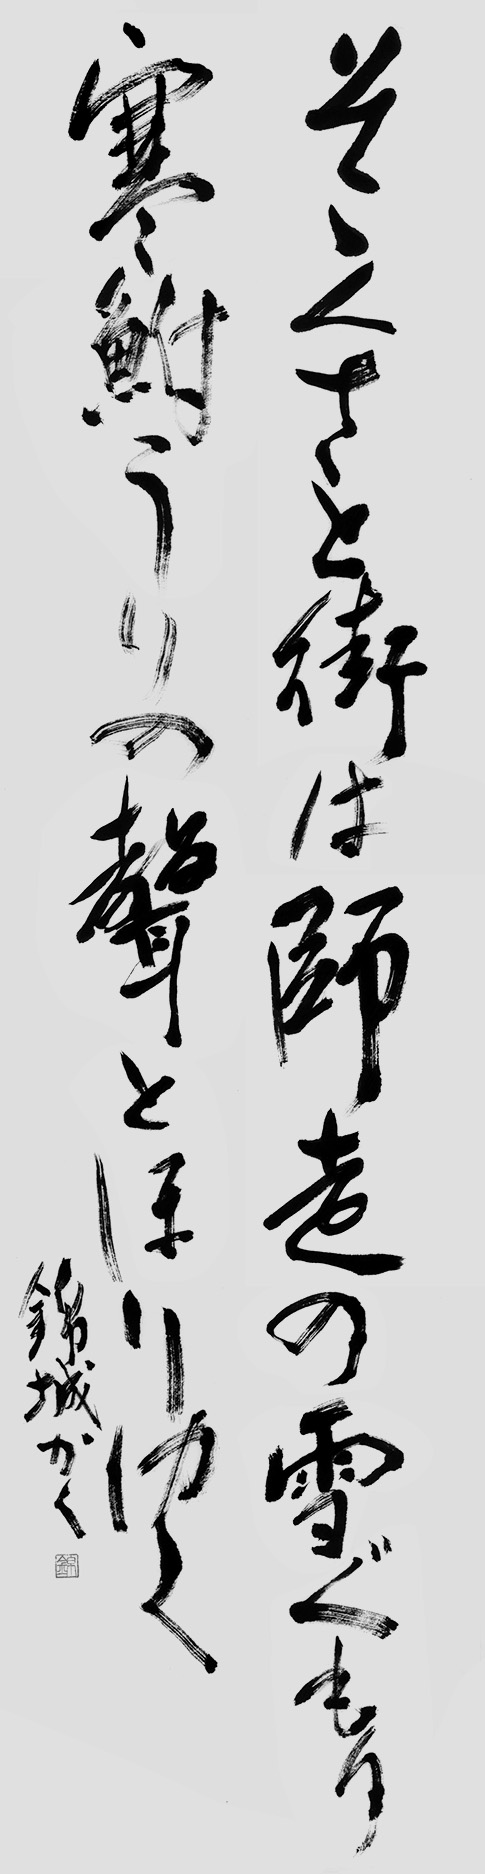 そゝくさと街は師走の雪ぐもり
寒鮒うりの聲とほりゆく
錦城かく
錦